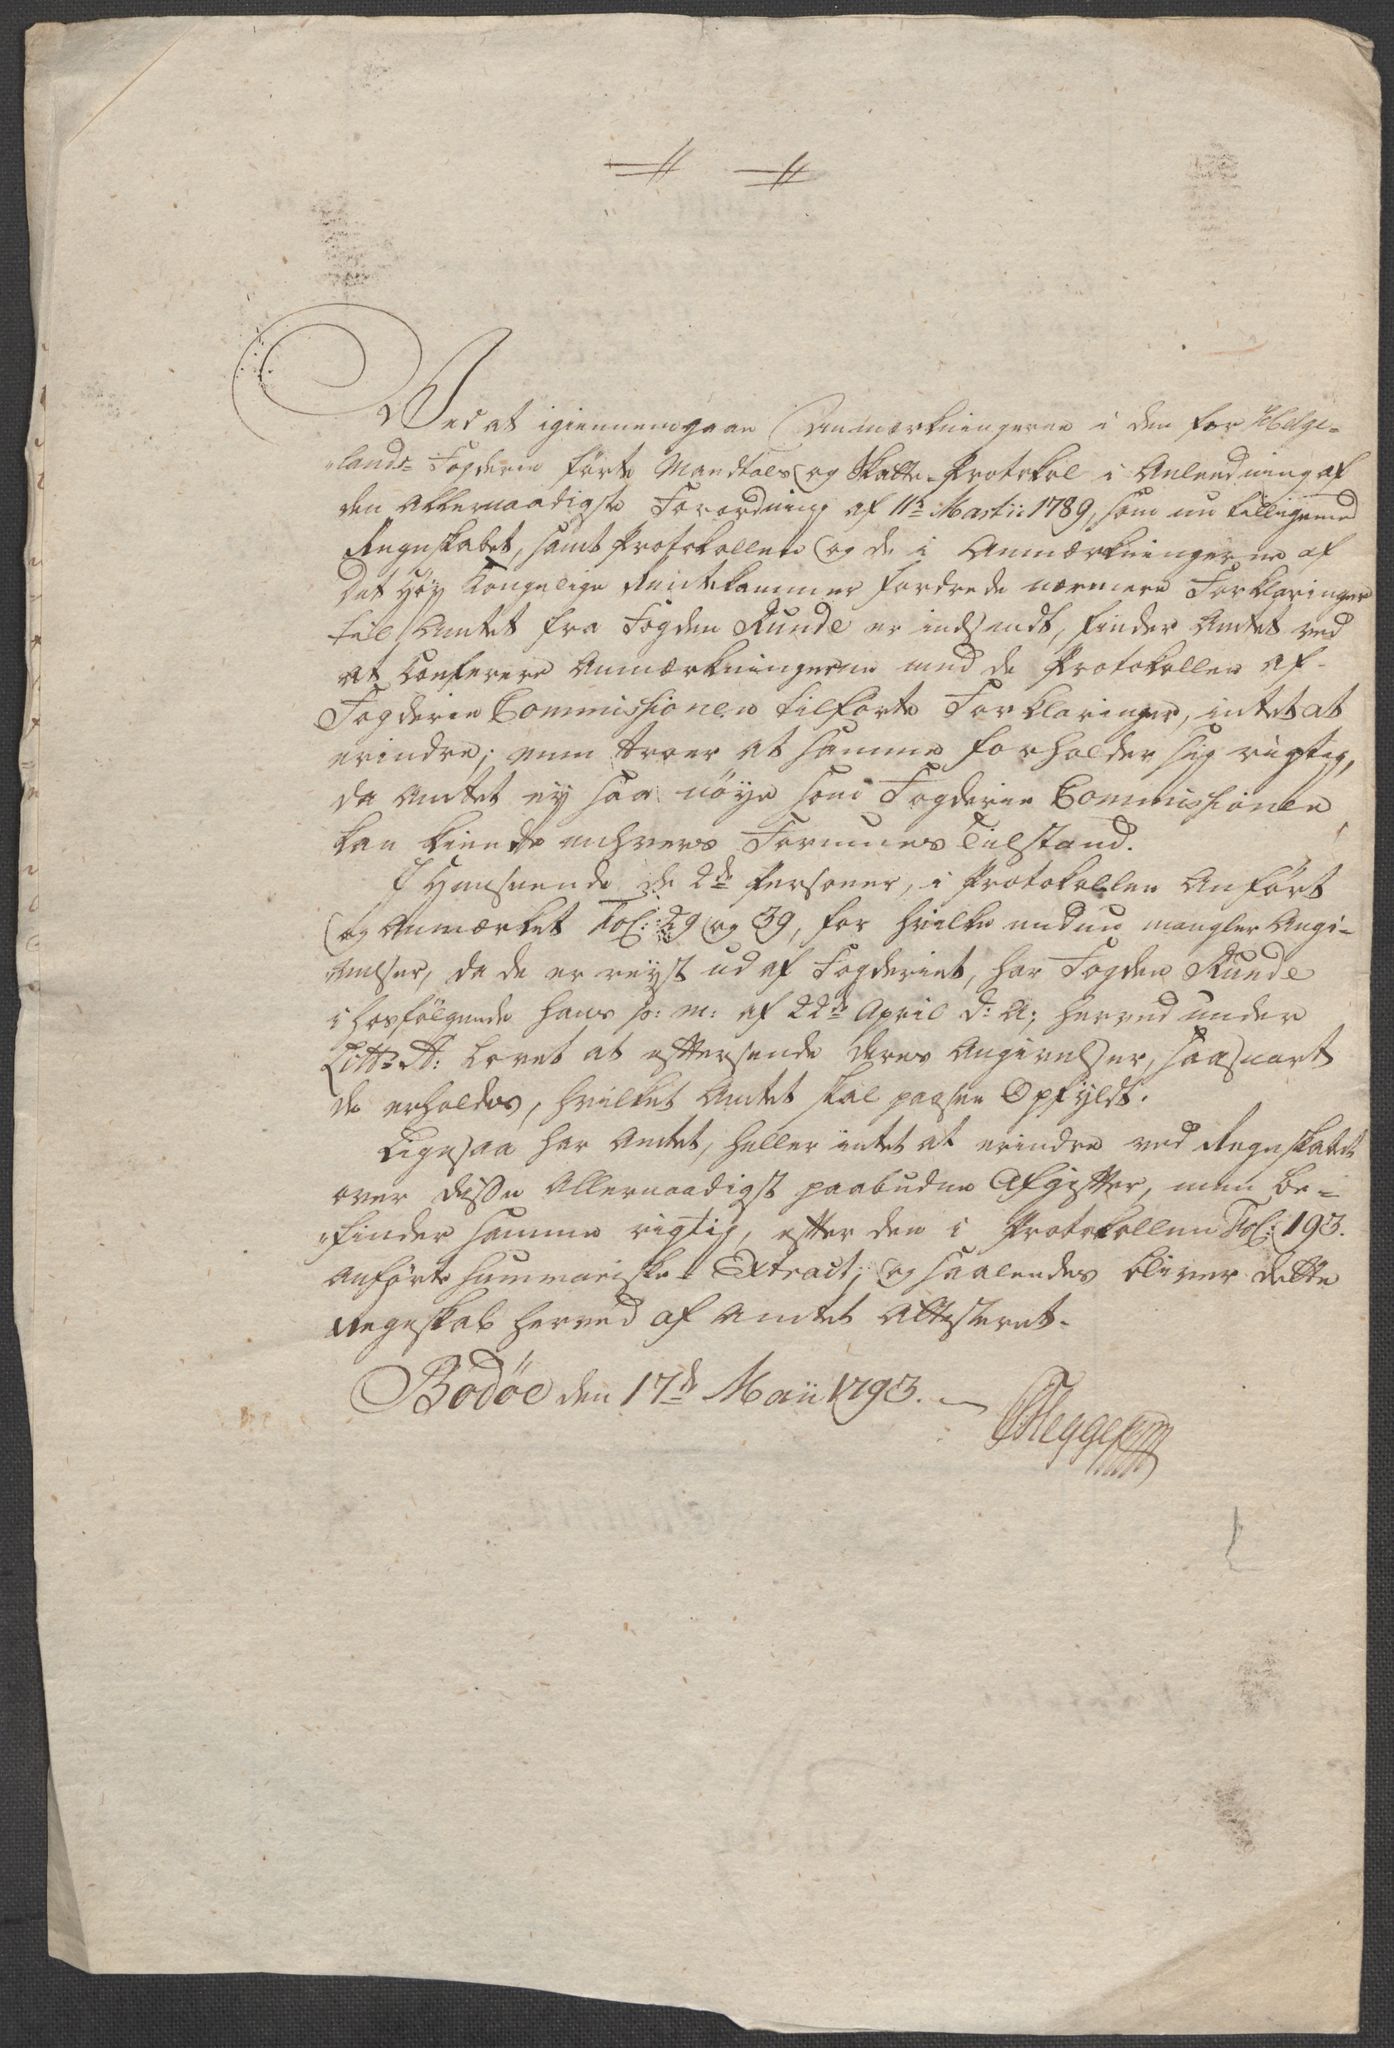 Ved at igiennemgaae Anmærkningerne i den for Helge-
lands Fogderie førte Mandtals og Skatte-Protokol i Anledning af
den Allernaadigste Forordning af 11te Martii 1789, som nu tilligemed
Regnskabet, samt Protokollen og de i Anmærkningerne af
Det Høy Kongelige Rentekammer fordrede nærmere Forklaringer
til Amtet fra Fogden Runde er indsendt, finder Amtet ved
at Conferere Anmærkningerne med de Protokollen af
Fogderie Commissionen tilførte Forklaringer, intet at
erindre; men troer at samme forholder sig rigtig,
da Amtet ey saa nøye som Fogderie Commissionen
kan kiende enhvers Formues Tilstand.
I Henseende de 2de Personer, i Protokollen Anført
og Anmærket Fol: 29 og 39, for hvilke endnu mangler Angi-
velser, da de er reyst ud af Fogderiet, har Fogden Runde
i hosfølgende hans p: m: af 22de April d: A: herved under
Litr. A: lovet at eftersende deres Angivelser, saasnart
de erholdes, hvilket Amtet skal paasee Opfyldt.
Ligesaa har Amtet, heller intet at erindre ved Regnskabet
over disse Allernaadigst paabudne Afgifter, men be-
finder samme rigtig, efter den i Protokollen Fol: 193.
Anførte Summariske Extract; og saaledes bliver dette
Regnskab herved af Amtet Attesteret.
Bodøe den 17de Maii 1793.
Hegge